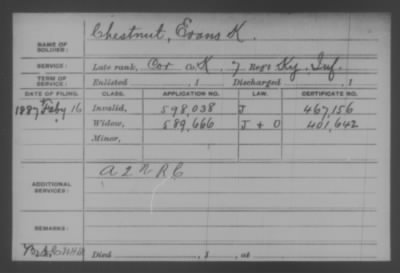 NAME OF SOLDIER: Chestnut, Evans K.
SERVICE: Late rank, Cor Co. K, 7 Reg't Ky. Inf.
TERM OF SERVICE: Enlisted , 1 Discharged , 1
DATE OF FILING. CLASS. APPLICATION NO. LAW. CERTIFICATE NO.
1887 Feby 16 Invalid, 598,038 J 467,156
Widow, 589,666 J + O 401,642
Minor,
ADDITIONAL SERVICES: A 2 R R C
REMARKS:
Died , 1 , at